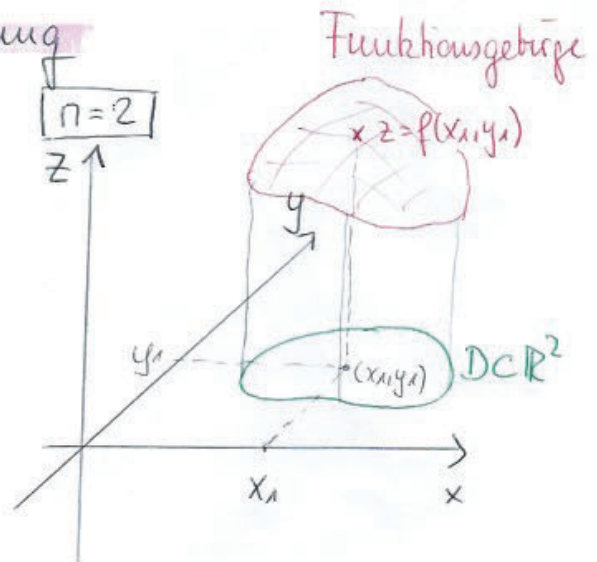 ung
Funktionsgebirge
n = 2
z = f(x₁, y₁)
Z
y
y₁
(x₁, y₁)
D⊂ℝ²
x₁
x